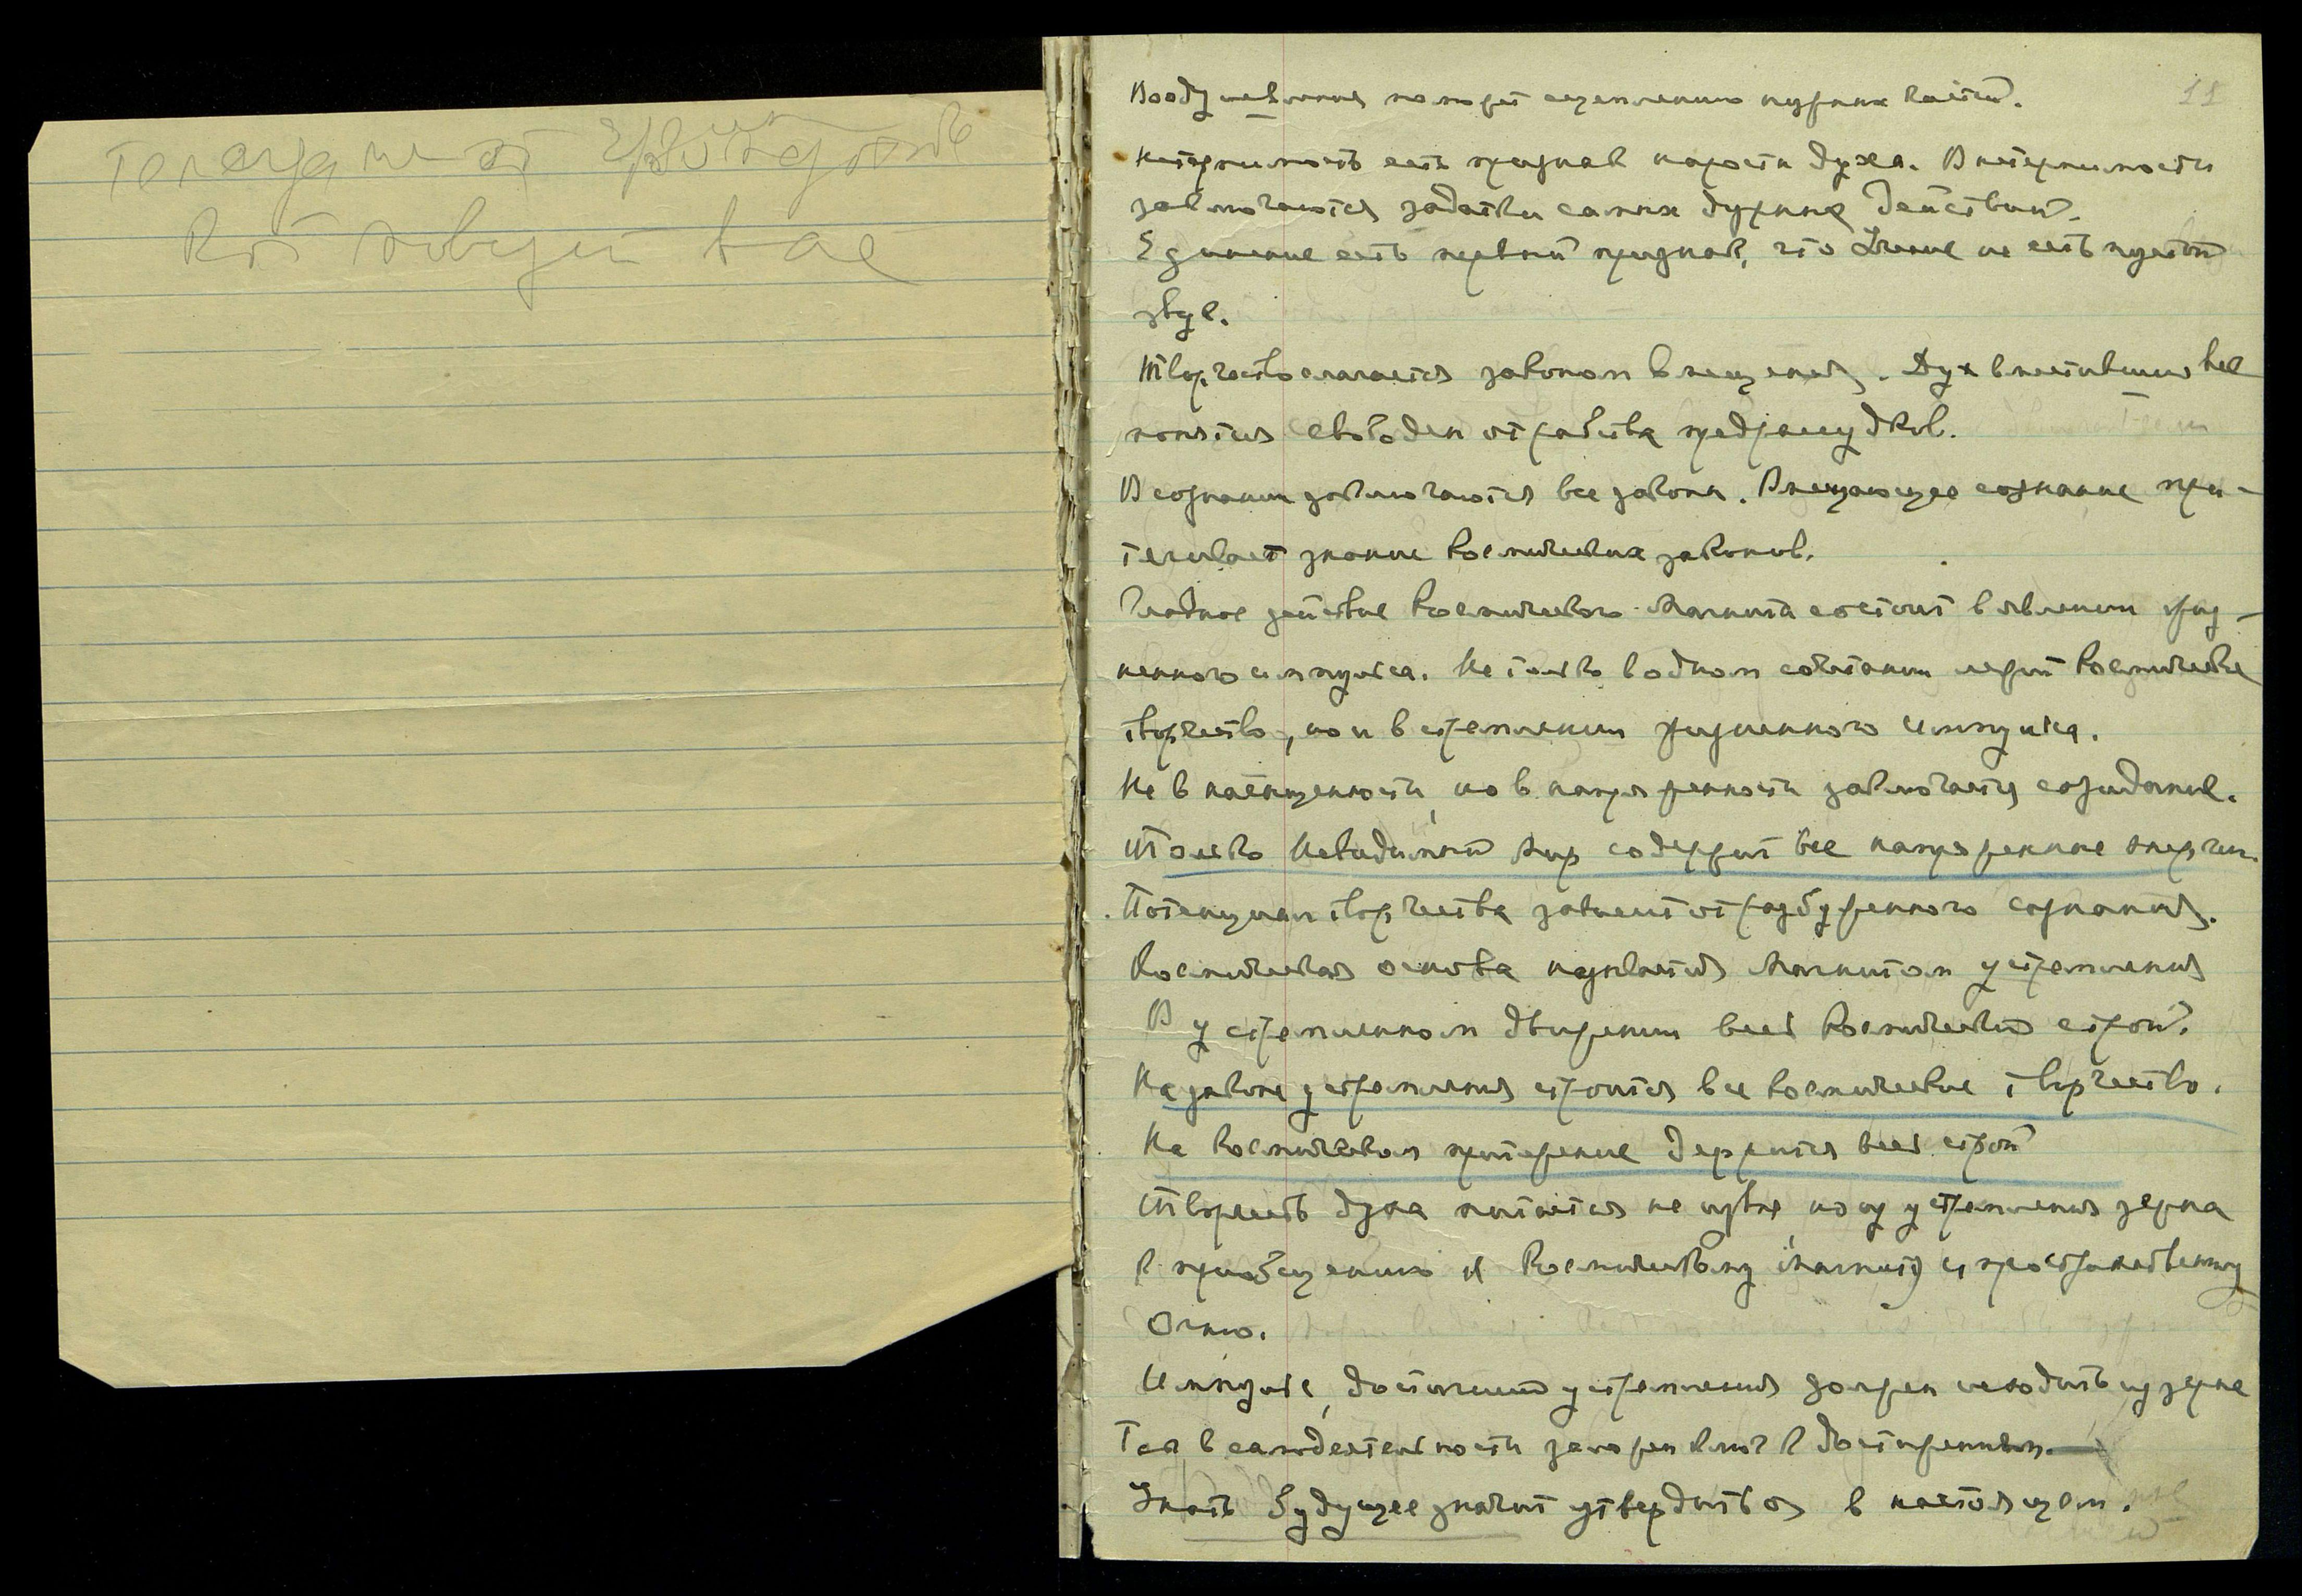 11
Воодушевление поможет сцеплению нужных частей.
Нетерпимость есть признак низости духа. В нетерпимости
заключаются задатки самых дурных действий.
Единение есть первый признак, что Учение не есть пустой
звук.
Творчество слагается законом вмещения. Дух вместивший все
понятия свободен от рабства предрассудков.
В сознании заключаются все законы. Вмещающее сознание при-
тягивает знание космических законов.
Главное действие Космического Магнита состоит в явлении жиз-
ненного импульса. Не только в одном сочетании лежит космическое
творчество, но и в стремлении жизненного импульса.
Не в насыщенности, но в напряженности заключается созидание.
Только Невидимый Мир содержит все напряженные энергии.
Потенциал творчества зависит от разбуженного сознания.
Космическая основа называется Магнитом устремления
В устремленном движении весь космический строй.
На законе устремления строится все космическое творчество.
На космическом притяжение держится весь строй
Творчеств духа питается не извне, но из устремления зерна
к приобщению к Космическому Магниту и пространственному
Огню.
Импульс, достигший устремления должен исходить из зерна
Так в самодеятельности заложен ключ к достижениям.
Знать будущее значит утвердиться в настоящем.